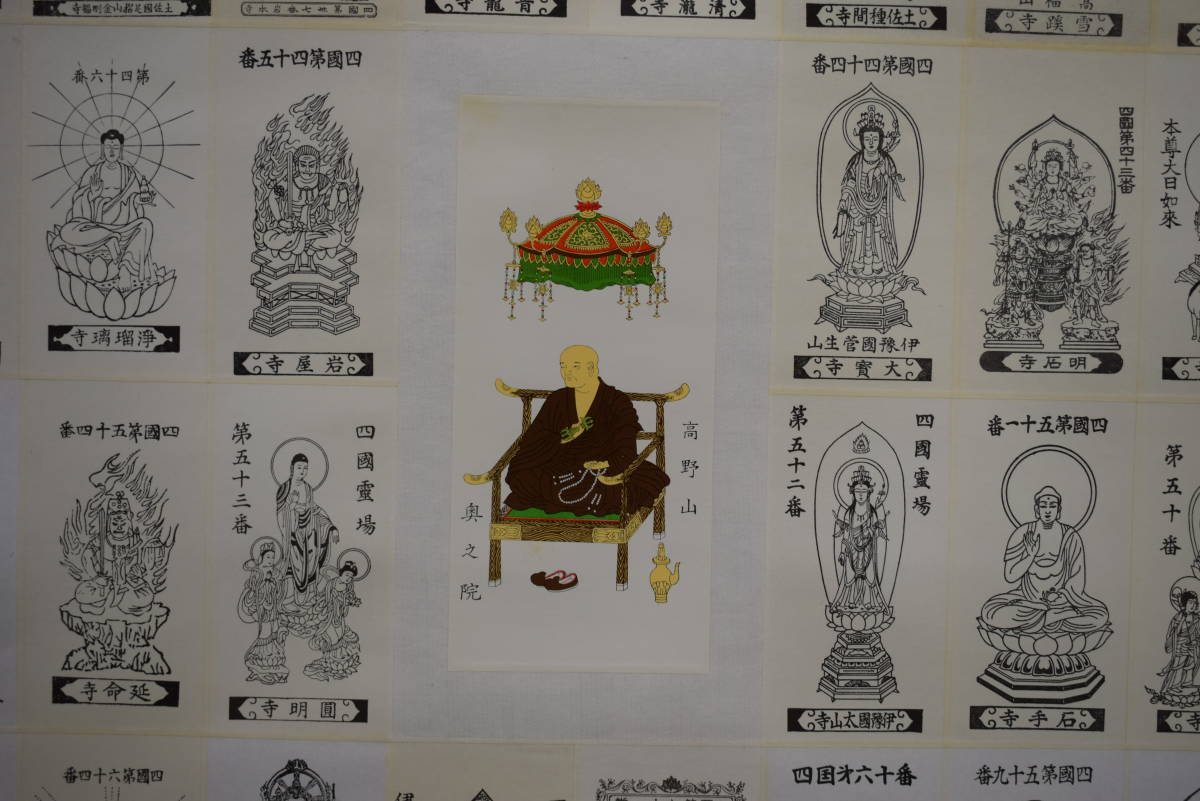 土佐國足摺山金剛福寺
四國第卅七番岩本寺
青龍寺
清瀧寺
土佐種間寺
雪蹊寺
第四十六番
淨瑠璃寺
四國第四十五番
岩屋寺
高野山
奥之院
四國第四十四番
伊豫國菅生山
大寳寺
四國第四十三番
明石寺
本尊大日如來
四國第五十四番
延命寺
四國靈場
第五十三番
圓明寺
四國靈場
第五十二番
伊豫國太山寺
四國第五十一番
石手寺
第五十番
寺
四國第六十四番
伊
四国才六十番
四國第五十九番